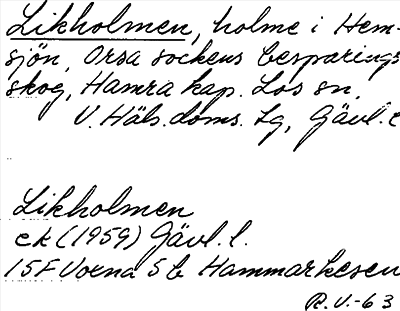 Likholmen, holme i Hem-
sjön, Orsa sockens besparings
skog, Hamra kap. Los sn,
V. Häls. doms. Lg, Gävl. l
Likholmen
ek (1959) Gävl. l.
15F Voxna 5 b Hammarkesen
R.V.-63